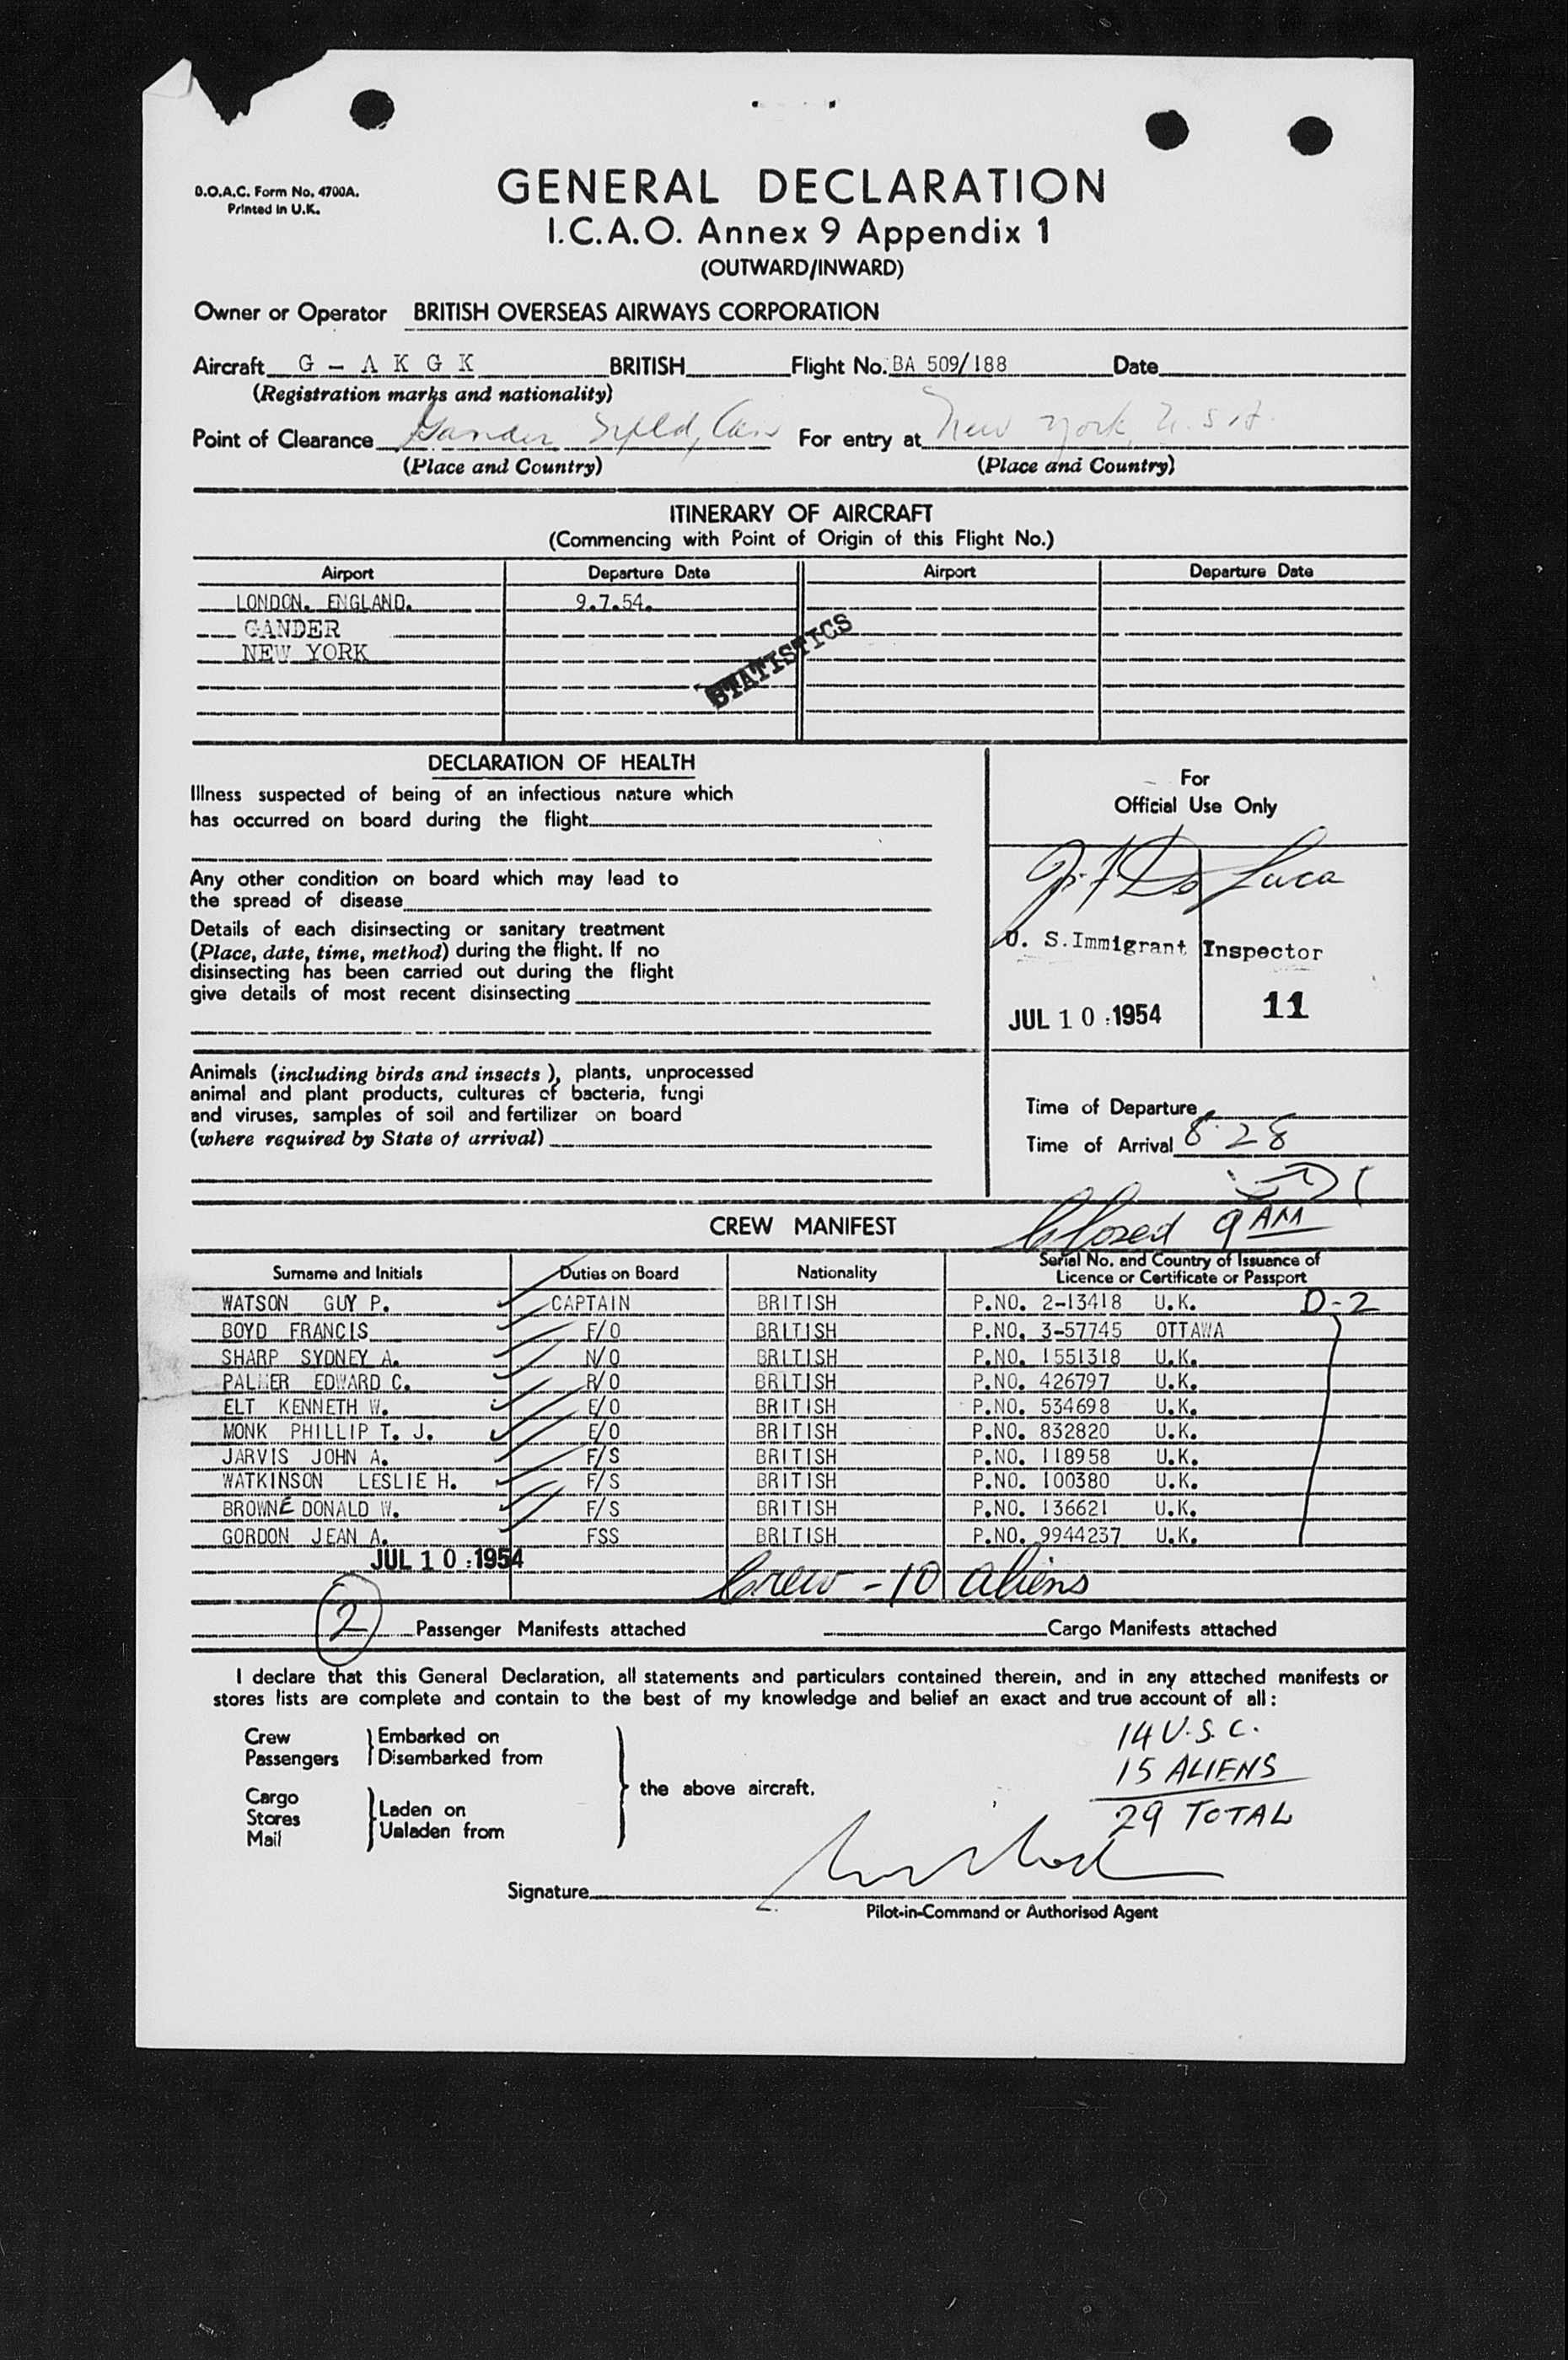 B.O.A.C. Form No. 4700A.
Printed in U.K.
GENERAL DECLARATION
I.C.A.O. Annex 9 Appendix 1
(OUTWARD/INWARD)
Owner or Operator BRITISH OVERSEAS AIRWAYS CORPORATION
Aircraft G - A K G K BRITISH Flight No. BA 509/188 Date
(Registration marks and nationality)
Point of Clearance Gander Nfld, Can For entry at New York, U.S.A.
(Place and Country) (Place and Country)
ITINERARY OF AIRCRAFT
(Commencing with Point of Origin of this Flight No.)
Airport Departure Date Airport Departure Date
LONDON. ENGLAND. 9.7.54.
GANDER
NEW YORK
STATISTICS
DECLARATION OF HEALTH
Illness suspected of being of an infectious nature which
has occurred on board during the flight
Any other condition on board which may lead to
the spread of disease
Details of each disinsecting or sanitary treatment
(Place, date, time, method) during the flight. If no
disinsecting has been carried out during the flight
give details of most recent disinsecting
Animals (including birds and insects), plants, unprocessed
animal and plant products, cultures of bacteria, fungi
and viruses, samples of soil and fertilizer on board
(where required by State of arrival)
For
Official Use Only
J. F. De Luca
U. S. Immigrant Inspector
JUL 10 1954 11
Time of Departure
Time of Arrival 8 28
Closed 9 AM
CREW MANIFEST
Surname and Initials Duties on Board Nationality Serial No. and Country of Issuance of
Licence or Certificate or Passport
WATSON GUY P. CAPTAIN BRITISH P.NO. 2-13418 U.K. D-2
BOYD FRANCIS F/O BRITISH P.NO. 3-57745 OTTAWA
SHARP SYDNEY A. N/O BRITISH P.NO. 1551318 U.K.
PALMER EDWARD C. R/O BRITISH P.NO. 426797 U.K.
ELT KENNETH W. E/O BRITISH P.NO. 534698 U.K.
MONK PHILLIP T. J. E/O BRITISH P.NO. 832820 U.K.
JARVIS JOHN A. F/S BRITISH P.NO. 118958 U.K.
WATKINSON LESLIE H. F/S BRITISH P.NO. 100380 U.K.
BROWNE DONALD W. F/S BRITISH P.NO. 136621 U.K.
GORDON JEAN A. FSS BRITISH P.NO. 9944237 U.K.
JUL 10 1954
Crew - 10 aliens
2 Passenger Manifests attached Cargo Manifests attached
I declare that this General Declaration, all statements and particulars contained therein, and in any attached manifests or
stores lists are complete and contain to the best of my knowledge and belief an exact and true account of all:
Crew
Passengers
Embarked on
Disembarked from
Cargo
Stores
Mail
Laden on
Unladen from
the above aircraft.
14 U.S.C.
15 ALIENS
29 TOTAL
Signature
Pilot-in-Command or Authorised Agent